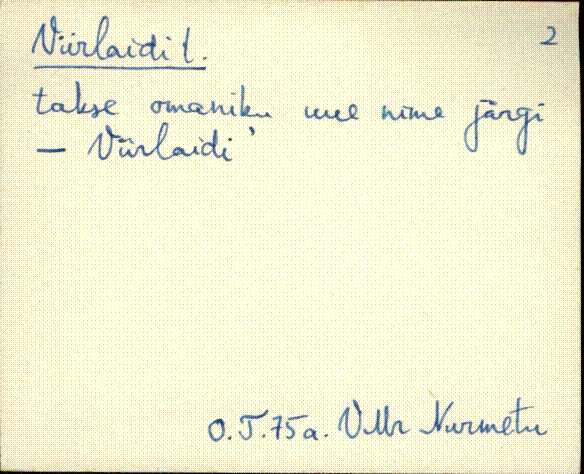 Viirlaidi t. 2
takse omaniku uue nime järgi
— Viirlaidi'
O.T. 75 a. VMr Nurmetu